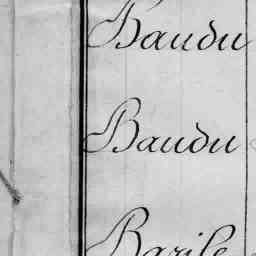 Baudu
Baudu
Barile